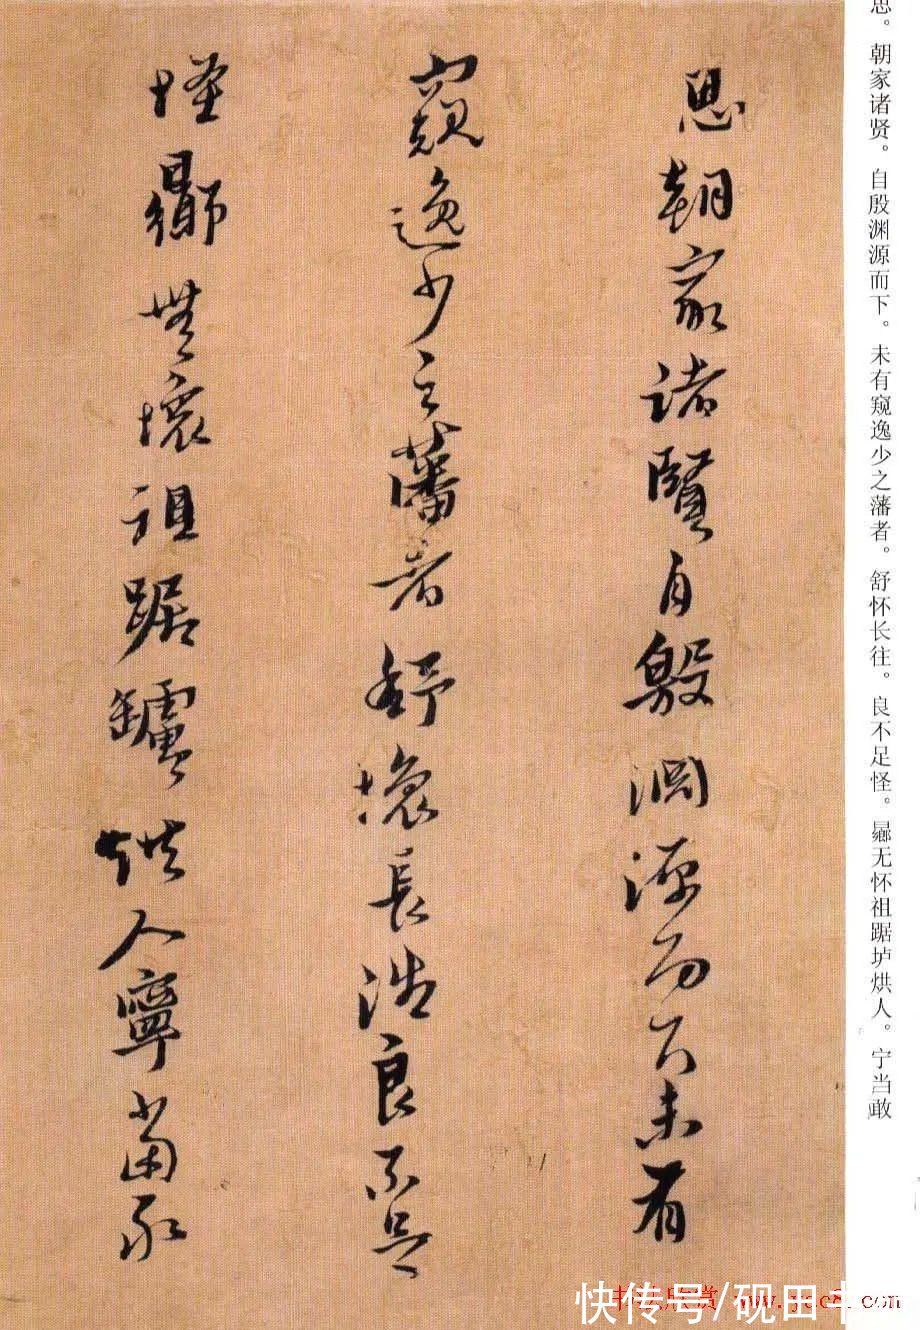 思。朝家诸贤。自殷渊源而下。未有窥逸少之藩者。舒怀长往。良不足怪。曏无怀祖踞垆烘人。宁当敢
思朝家諸賢自殷淵源而下未有
窺逸少之藩者舒懷長往良不足
怪曏無懷祖踞鑪烘人寧當敢
快传号/砚田书